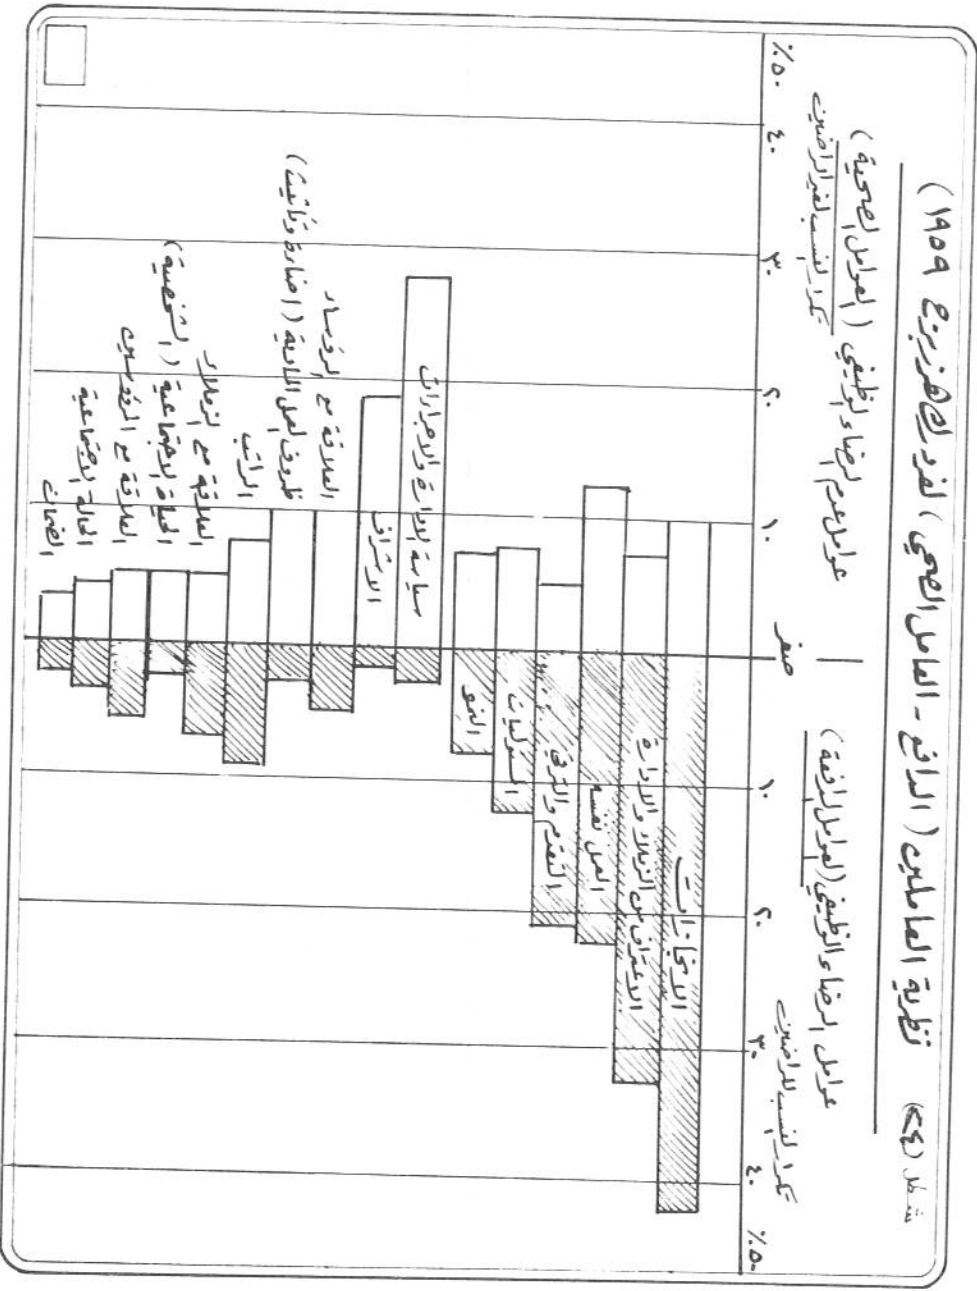 شكل (٢٤) نظرية العاملين (الدافع - العامل الصحي) لفردريك هرزبرج ١٩٥٩)
عوامل الرضاء الوظيفي (العوامل الدافعة)
تكرار النسب للراضين
عوامل عدم الرضاء الوظيفي (العوامل الصحية)
تكرار النسب لغير الراضين
٥٠٪ ٤٠ ٣٠ ٢٠ ١٠ صفر ١٠ ٢٠ ٣٠ ٤٠ ٥٠٪
الانجازات
الاعتراف من الزملاء والادارة
العمل نفسه
التقدم والترقي
المسئوليات
النمو
سياسة الادارة والاجراءات
الاشراف
العلاقة مع الرؤساء
ظروف العمل المادية (اضاءة وتأثيث)
الراتب
العلاقة مع الزملاء
الحياة الاجتماعية (الشخصية)
العلاقة مع المرؤوسين
الحالة الاجتماعية
الضمان